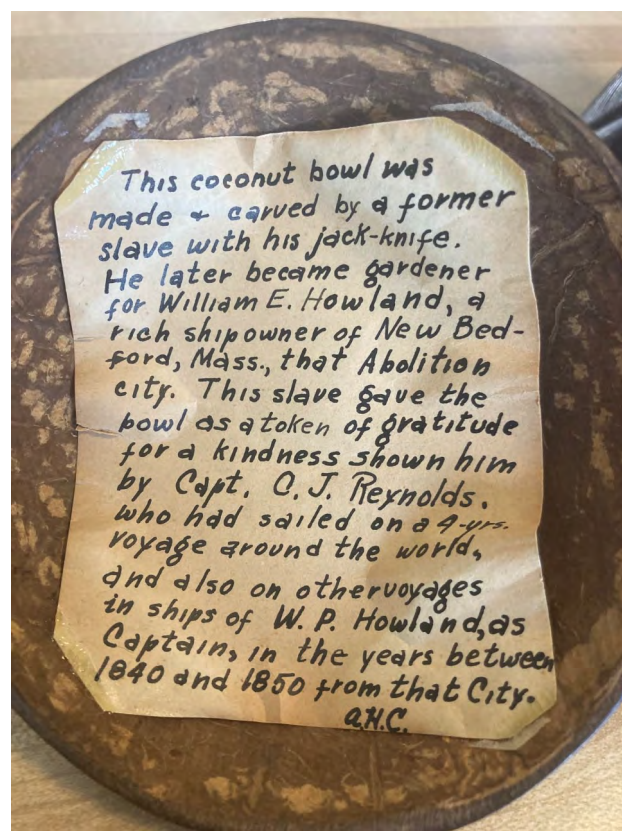 This coconut bowl was
made & carved by a former
slave with his jack-knife.
He later became gardener
for William E. Howland, a
rich shipowner of New Bed-
ford, Mass., that Abolition
city. This slave gave the
bowl as a token of gratitude
for a kindness shown him
by Capt. C. J. Reynolds.
who had sailed on a 4-yrs.
voyage around the world,
and also on other voyages
in ships of W. P. Howland, as
Captain, in the years between
1840 and 1850 from that City.
a.H.C.